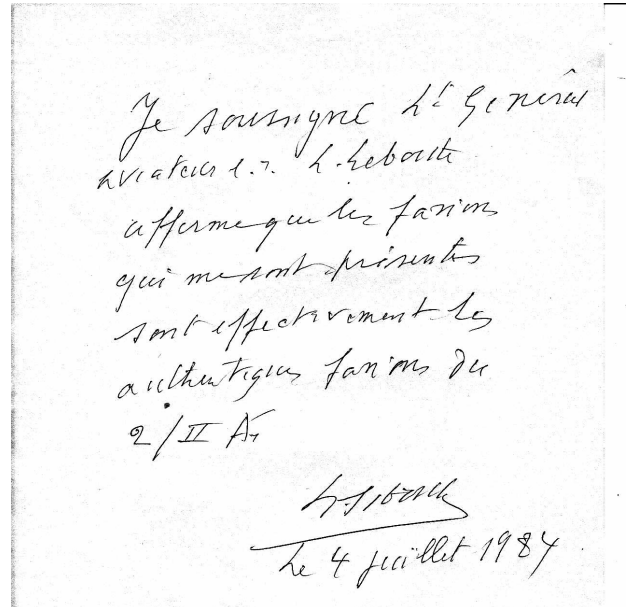 Je soussigné Lt Général
aviateur e.r. L. Leboutte
affirme que les fanions
qui me sont présentés
sont effectivement les
authentiques fanions du
2/II Aé
L Leboutte
Le 4 juillet 1984